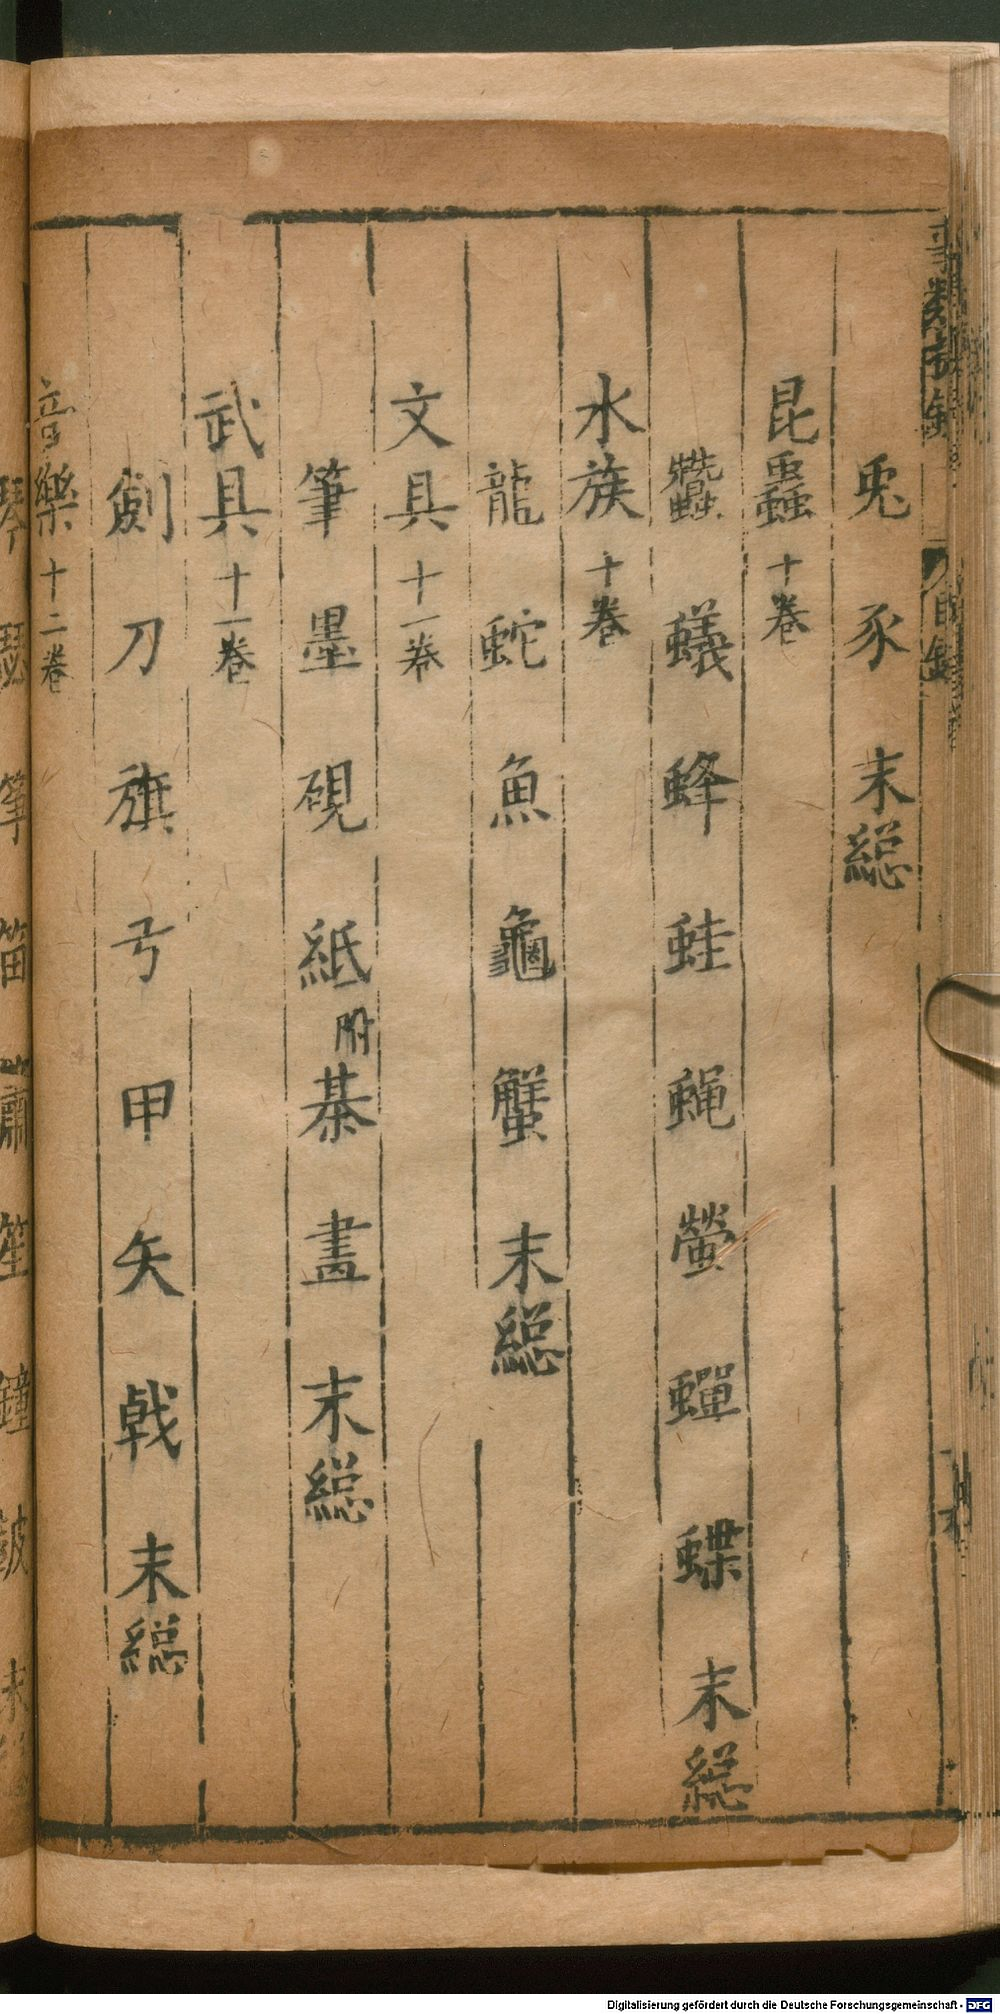 兎 豕 末総
昆蟲 十巻
蠶 蟻 蜂 蛙 蝿 螢 蟬 蝶 末総
水族 十巻
龍 蛇 魚 龜 蟹 末総
文具 十一巻
筆 墨 硯 紙 附 棊 畫 末総
武具 十一巻
劍 刀 旗 弓 甲 矢 戟 末総
音樂 十二巻
琴 瑟 箏 笛 簫 笙 鐘 鼓 末
Digitalisierung gefördert durch die Deutsche Forschungsgemeinschaft - DFG